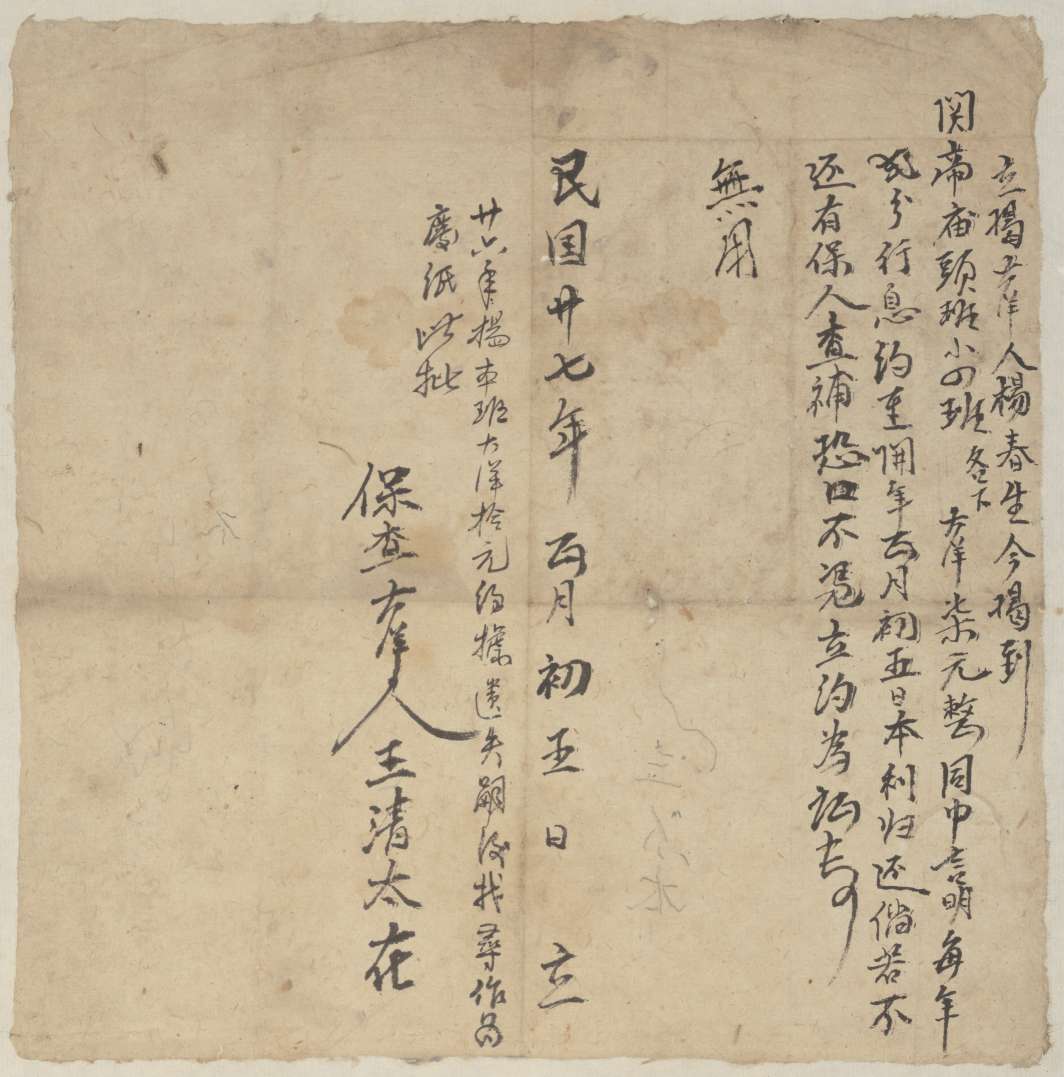 立揭大洋人楊春生今揭到
関帝庙頭班小四班名下大洋柒元整同中言明每年
弍分行息約至開年正月初五日本利归还倘若不
还有保人查補恐口不憑立約為証
無用
民国廿七年正月初五日立
廿六年揭本班大洋拾元約據遺失嗣後找尋作為
廢紙此批
保查大洋人王清太在